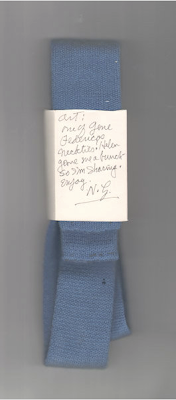 Art:
one of Gene
Federicos
neckties. Helen
gave me a bunch
so I'm sharing.
Enjoy
N.G.